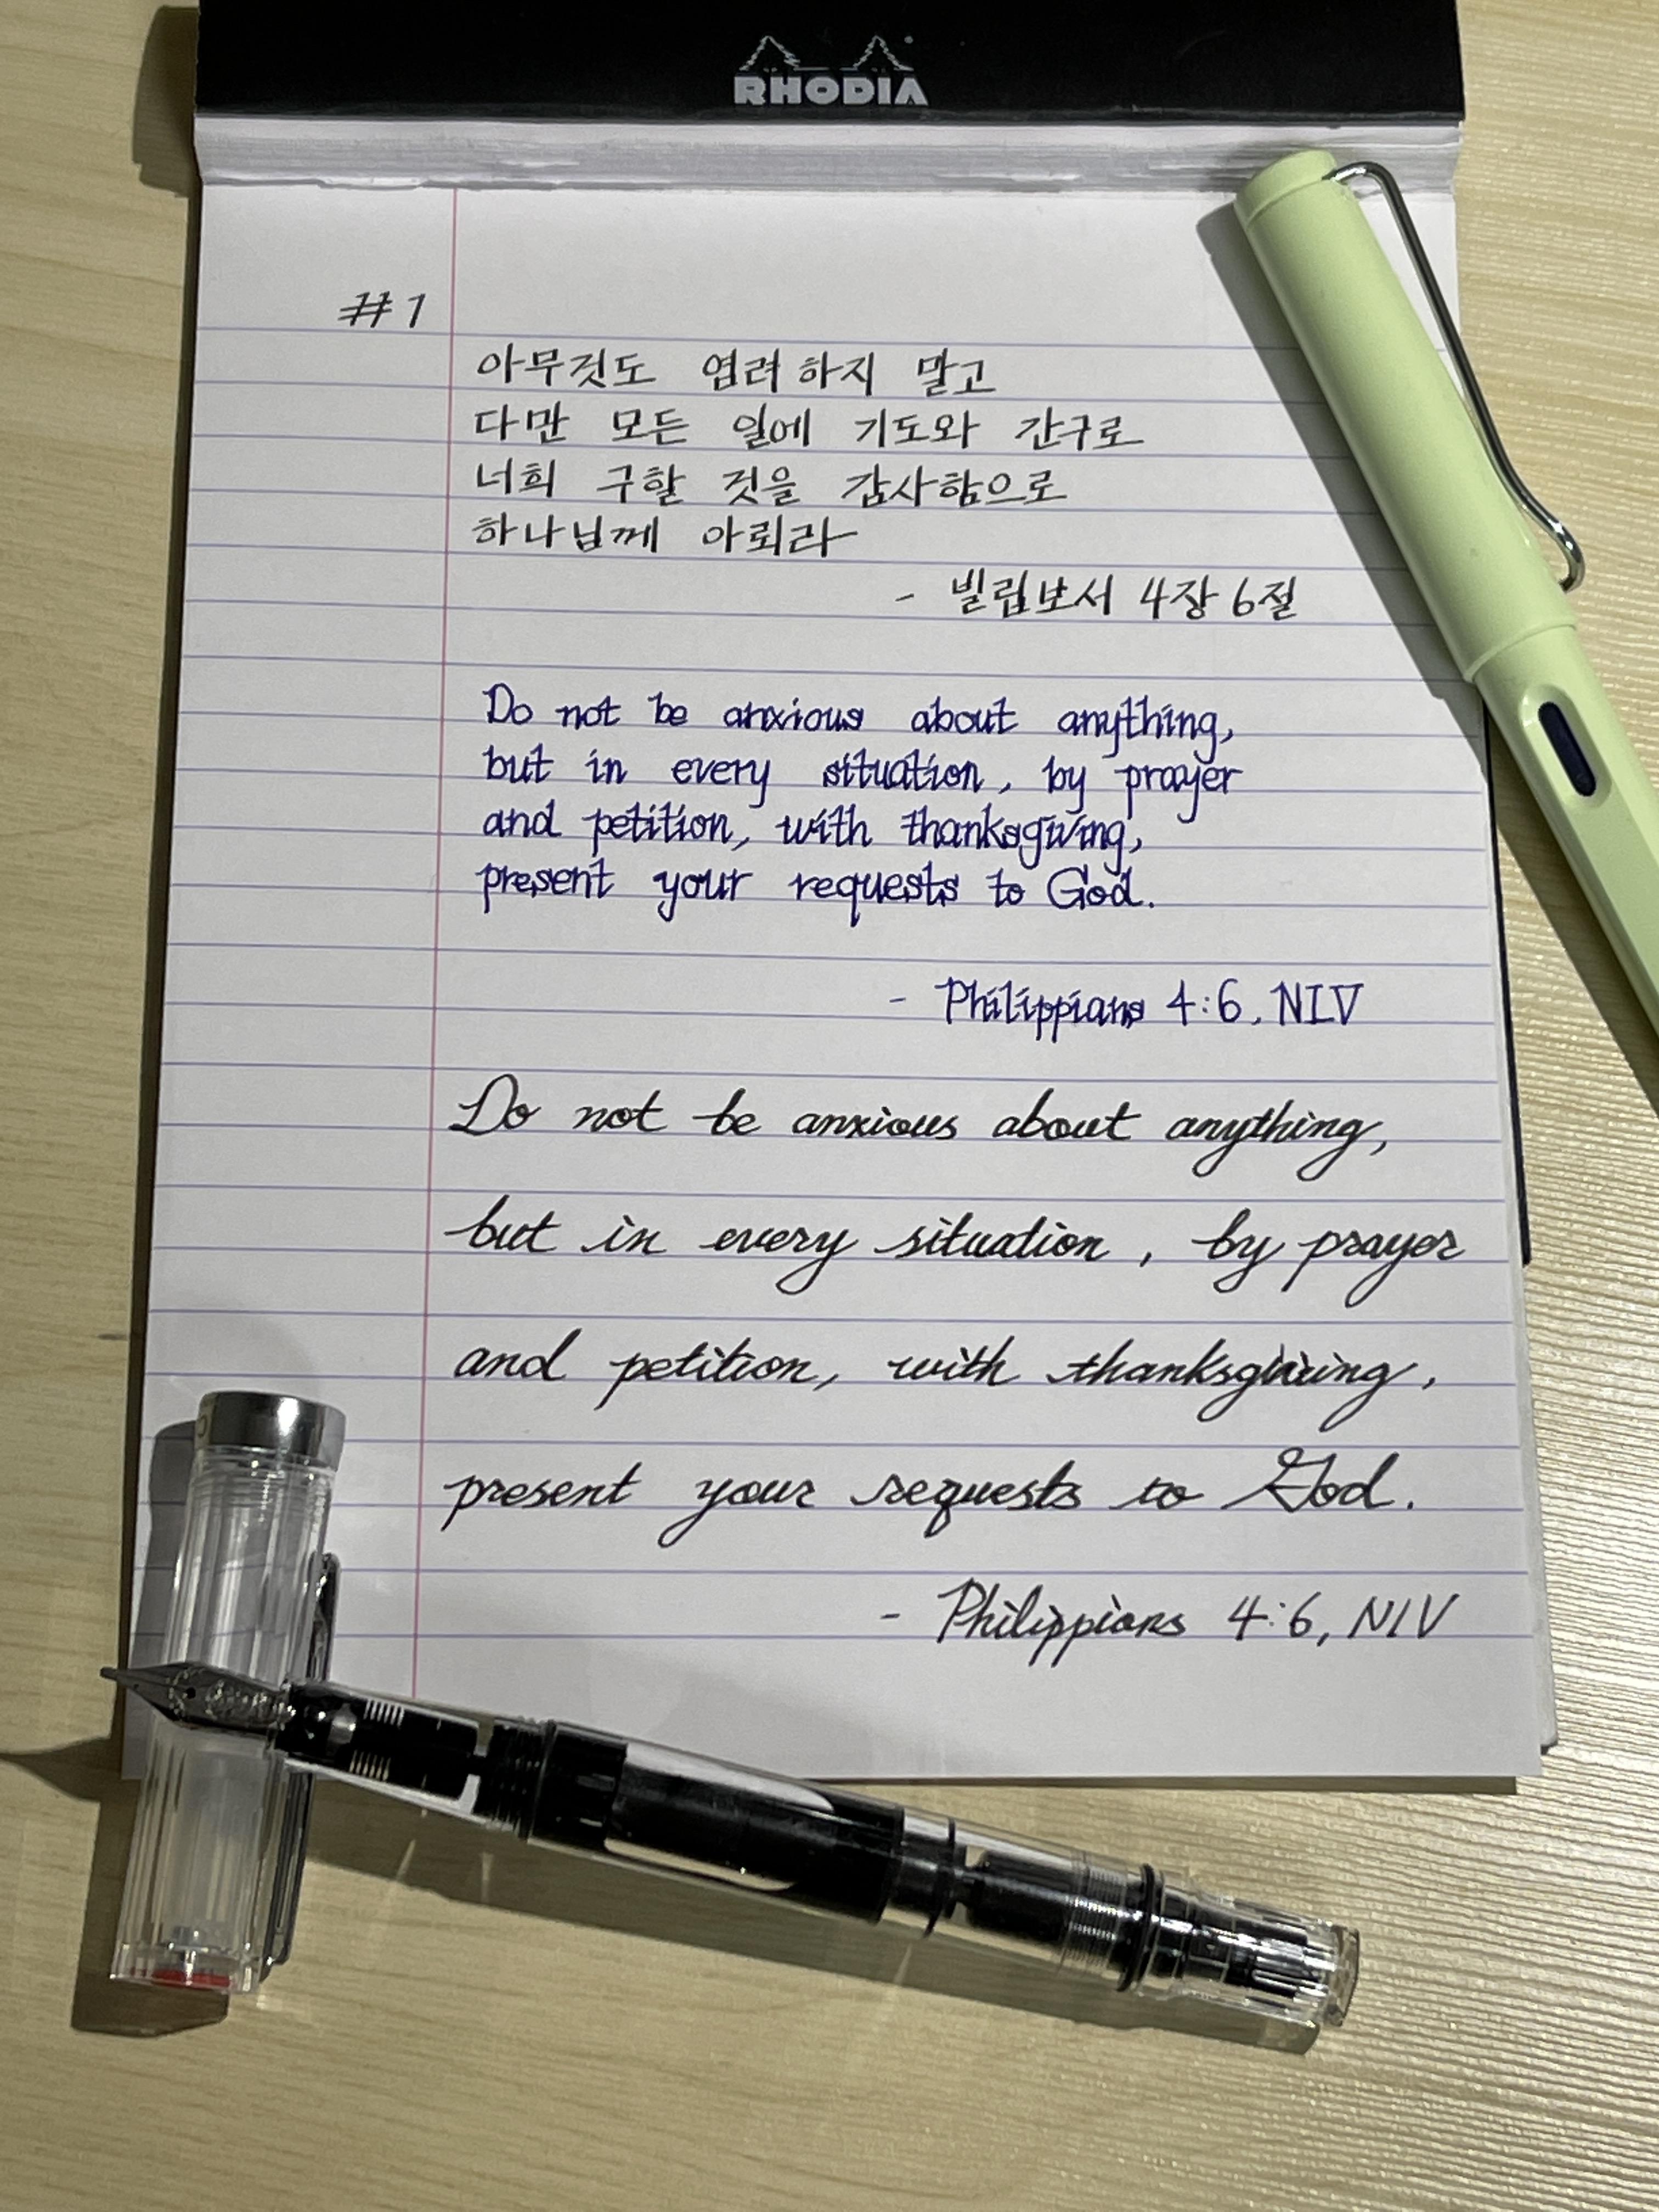 RHODIA
#1
아무것도 염려하지 말고
다만 모든 일에 기도와 간구로
너희 구할 것을 감사함으로
하나님께 아뢰라
- 빌립보서 4장 6절
Do not be anxious about anything,
but in every situation, by prayer
and petition, with thanksgiving,
present your requests to God.
- Philippians 4:6, NIV
Do not be anxious about anything,
but in every situation, by prayer
and petition, with thanksgiving,
present your requests to God.
- Philippians 4:6, NIV